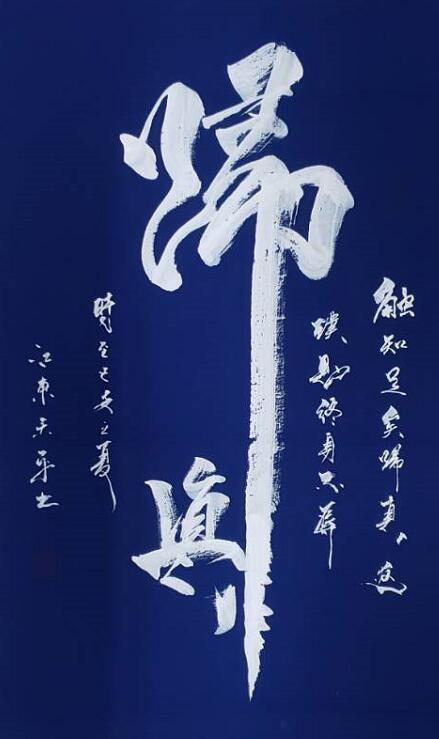 觸知足矣歸真返
璞則終身不辱
歸真
時至己亥之夏
江東天平书